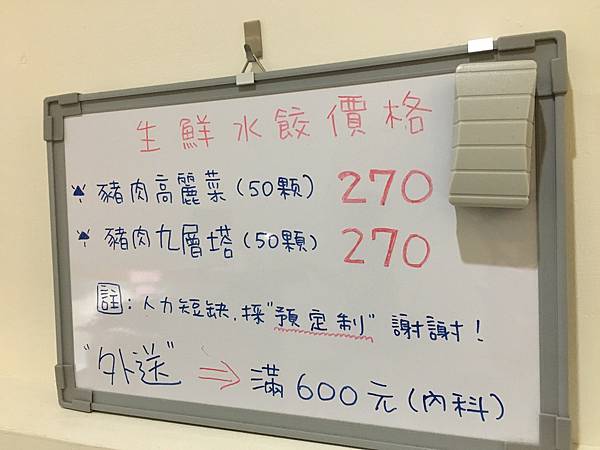 生鮮水餃價格
豬肉高麗菜(50顆) 270
豬肉九層塔(50顆) 270
註:人力短缺.採"預定制"謝謝!
"外送" ⇒ 滿600元(內科)